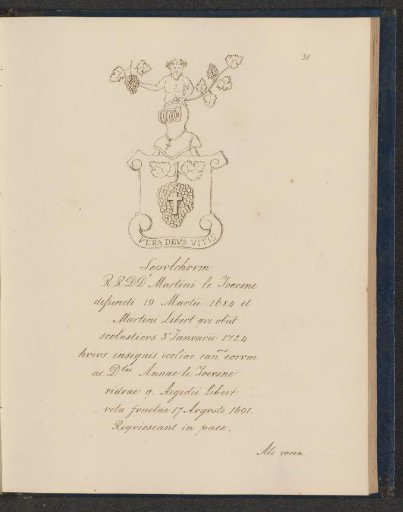 38
VERA DEVS VITIS
Sepvlchrvm
R.R.D.D. Martini le Joevsne
defuncti 19 Martii 1684 et
Martini Libert qvi obiit
scolasticvs 5 Janvarii 1724
hvivs insignis eccliae can.corvm
ac D.lae Annae le Joevsne
vidvae q. Aegidii Libert
vita fvnctae 17 Avgvsti 1691.
Reqviescant in pace.
Als voren